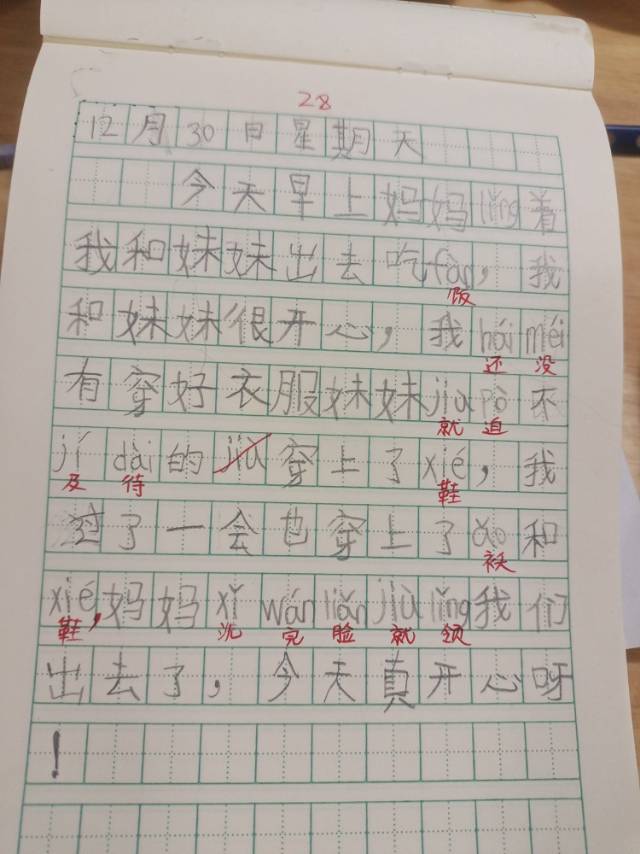 28
12月30日星期天
今天早上妈妈lǐng着
我和妹妹出去吃fàn，我
饭
和妹妹很开心，我hái méi
还 没
有穿好衣服妹妹jiù pò不
就 迫
jí dài的jiù穿上了xié，我
及 待 鞋
过了一会也穿上了ǎo和
袄
xié，妈妈xǐ wán liǎn jiù lǐng我们
鞋 洗 完 脸 就 领
出去了，今天真开心呀
！